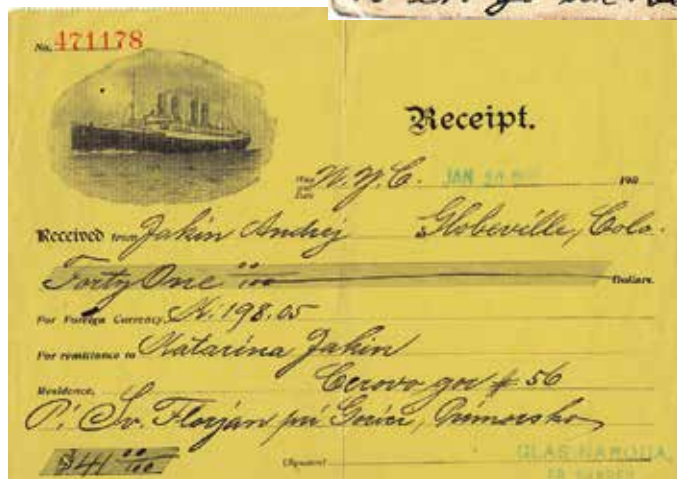 No. 471178
Receipt.
N.Y.C. JAN 190
Received from Jakin Andrej Globeville, Colo.
Forty One 00/100 Dollars.
For Foreign Currency, K. 198.05
For remittance to Katarina Jakin
Residence, Cerovo gor # 56
P. Sv. Florjan pri Gorici, Primorsko
$41 00/100 (Signature)
GLAS NARODA,